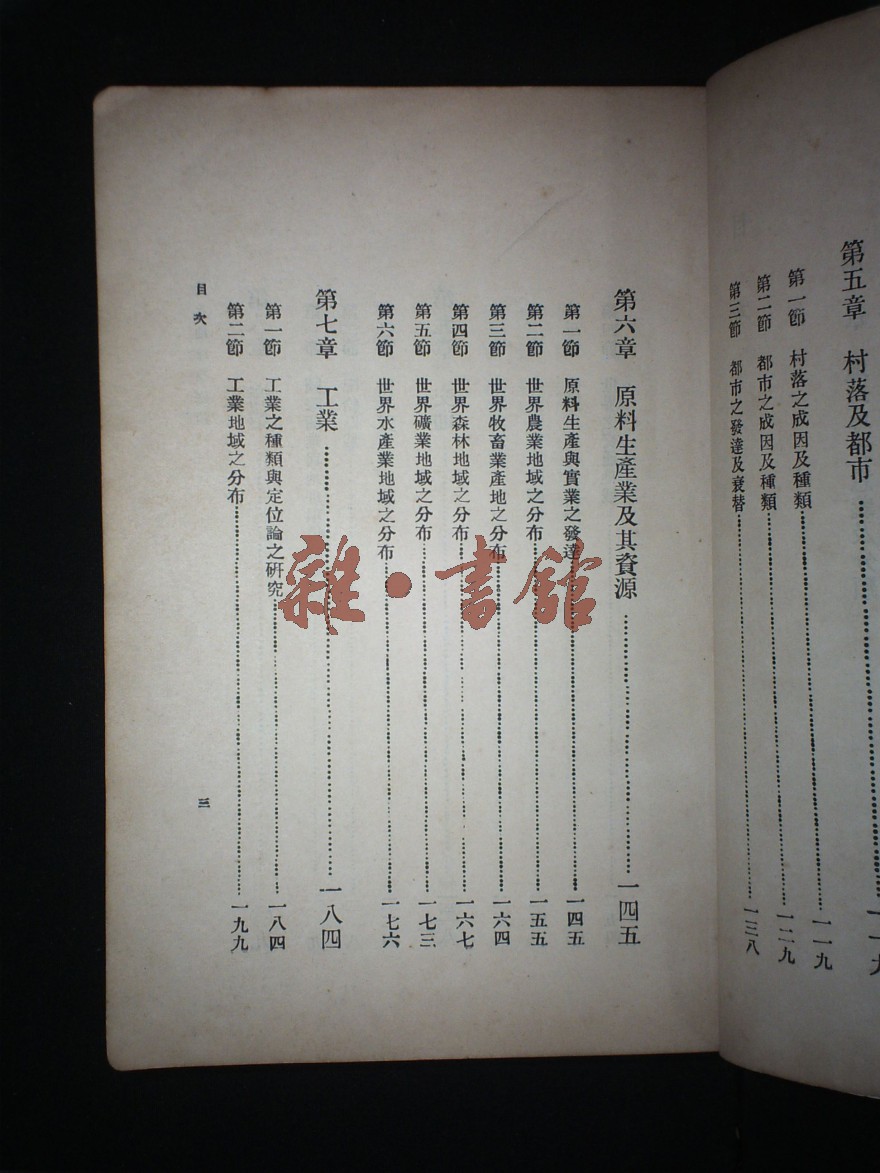 第五章 村落及都市 一一九
第一節 村落之成因及種類 一一九
第二節 都市之成因及種類 一二九
第三節 都市之發達及衰替 一三八
第六章 原料生產業及其資源 一四五
第一節 原料生產與實業之發達 一四五
第二節 世界農業地域之分布 一五五
第三節 世界牧畜業產地之分布 一六四
第四節 世界森林地域之分布 一六七
第五節 世界礦業地域之分布 一七三
第六節 世界水產業地域之分布 一七六
第七章 工業 一八四
第一節 工業之種類與定位論之研究 一八四
第二節 工業地域之分布 一九九
目次
三
雜·書館